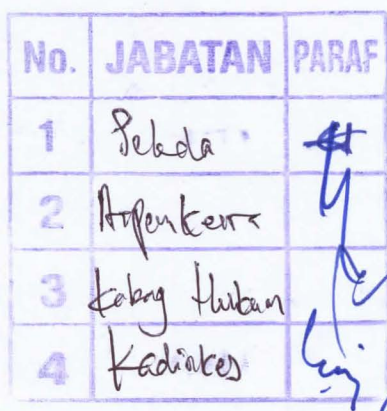 No. JABATAN PARAF
1 Sekda
2 Aspemkesra
3 Kabag Hukum
4 Kadinkes